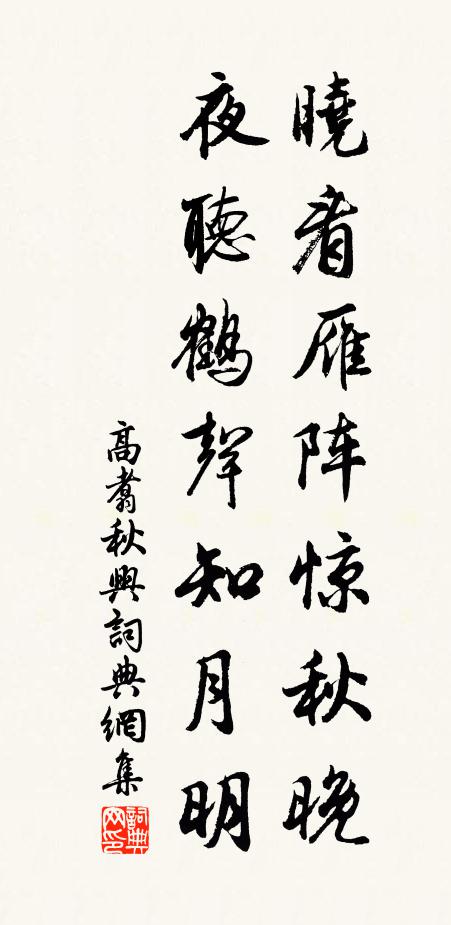 曉看雁阵惊秋晚
夜聽鶴聲知月明
高翥秋興詞典網集
詞典
网印